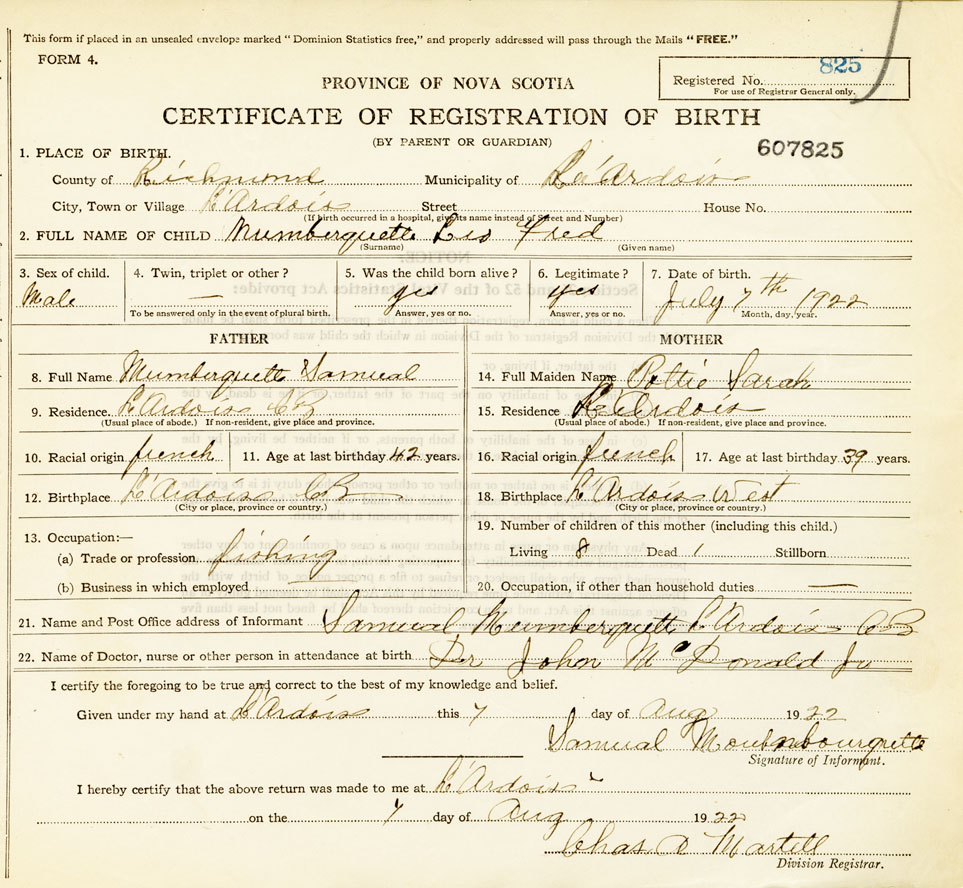 This form if placed in an unsealed envelope marked "Dominion Statistics free," and properly addressed will pass through the Mails "FREE."
FORM 4.
Registered No. 825
For use of Registrar General only.
PROVINCE OF NOVA SCOTIA
CERTIFICATE OF REGISTRATION OF BIRTH
(BY PARENT OR GUARDIAN)
607825
1. PLACE OF BIRTH.
County of Richmond Municipality of L'Ardois
City, Town or Village L'Ardois Street House No.
(If birth occurred in a hospital, give its name instead of Street and Number)
2. FULL NAME OF CHILD Mumberquette Leo Fred
(Surname) (Given name)
3. Sex of child. Male
4. Twin, triplet or other? —
To be answered only in the event of plural birth.
5. Was the child born alive? yes
Answer, yes or no.
6. Legitimate? yes
Answer, yes or no.
7. Date of birth. July 7th 1922
Month, day, year.
FATHER
8. Full Name Mumberquette Samual
9. Residence. L'Ardois CB
(Usual place of abode.) If non-resident, give place and province.
10. Racial origin french 11. Age at last birthday 42 years.
12. Birthplace L'Ardois CB
(City or place, province or country.)
13. Occupation:—
(a) Trade or profession fishing
(b) Business in which employed
MOTHER
14. Full Maiden Name Pottie Sarah
15. Residence L'Ardois
(Usual place of abode.) If non-resident, give place and province.
16. Racial origin french 17. Age at last birthday 39 years.
18. Birthplace L'Ardois West
(City or place, province or country.)
19. Number of children of this mother (including this child.)
Living 8 Dead 1 Stillborn
20. Occupation, if other than household duties —
21. Name and Post Office address of Informant Samual Mumberquette L'Ardois CB
22. Name of Doctor, nurse or other person in attendance at birth Dr John McDonald Jr
I certify the foregoing to be true and correct to the best of my knowledge and belief.
Given under my hand at L'Ardois this 7 day of Aug 1922
Samual Moutnbourquette
Signature of Informant.
I hereby certify that the above return was made to me at L'Ardois
on the 7 day of Aug 1922
Chas D Martell
Division Registrar.